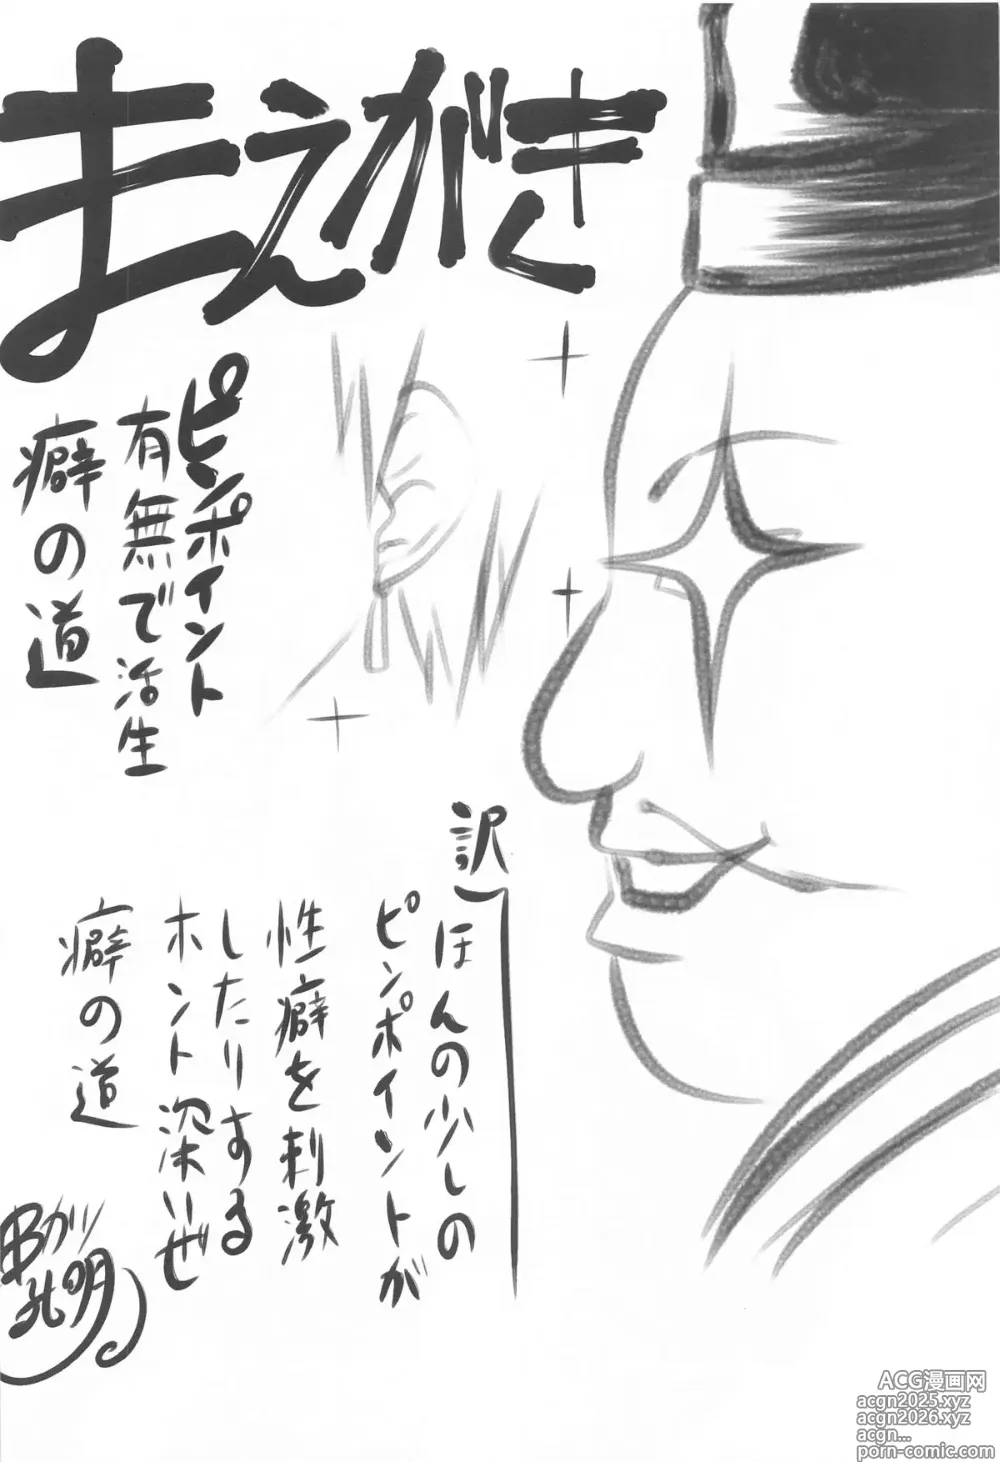 まえがき
ピンポイント
有無で活生
癖の道
訳
ほんの少しの
ピンポイントが
性癖を刺激
したりする
ホント深いぜ
癖の道
孔明
ACG漫画网
acgn2025.xyz
acgn2026.xyz
acgn...
porn-comic.com